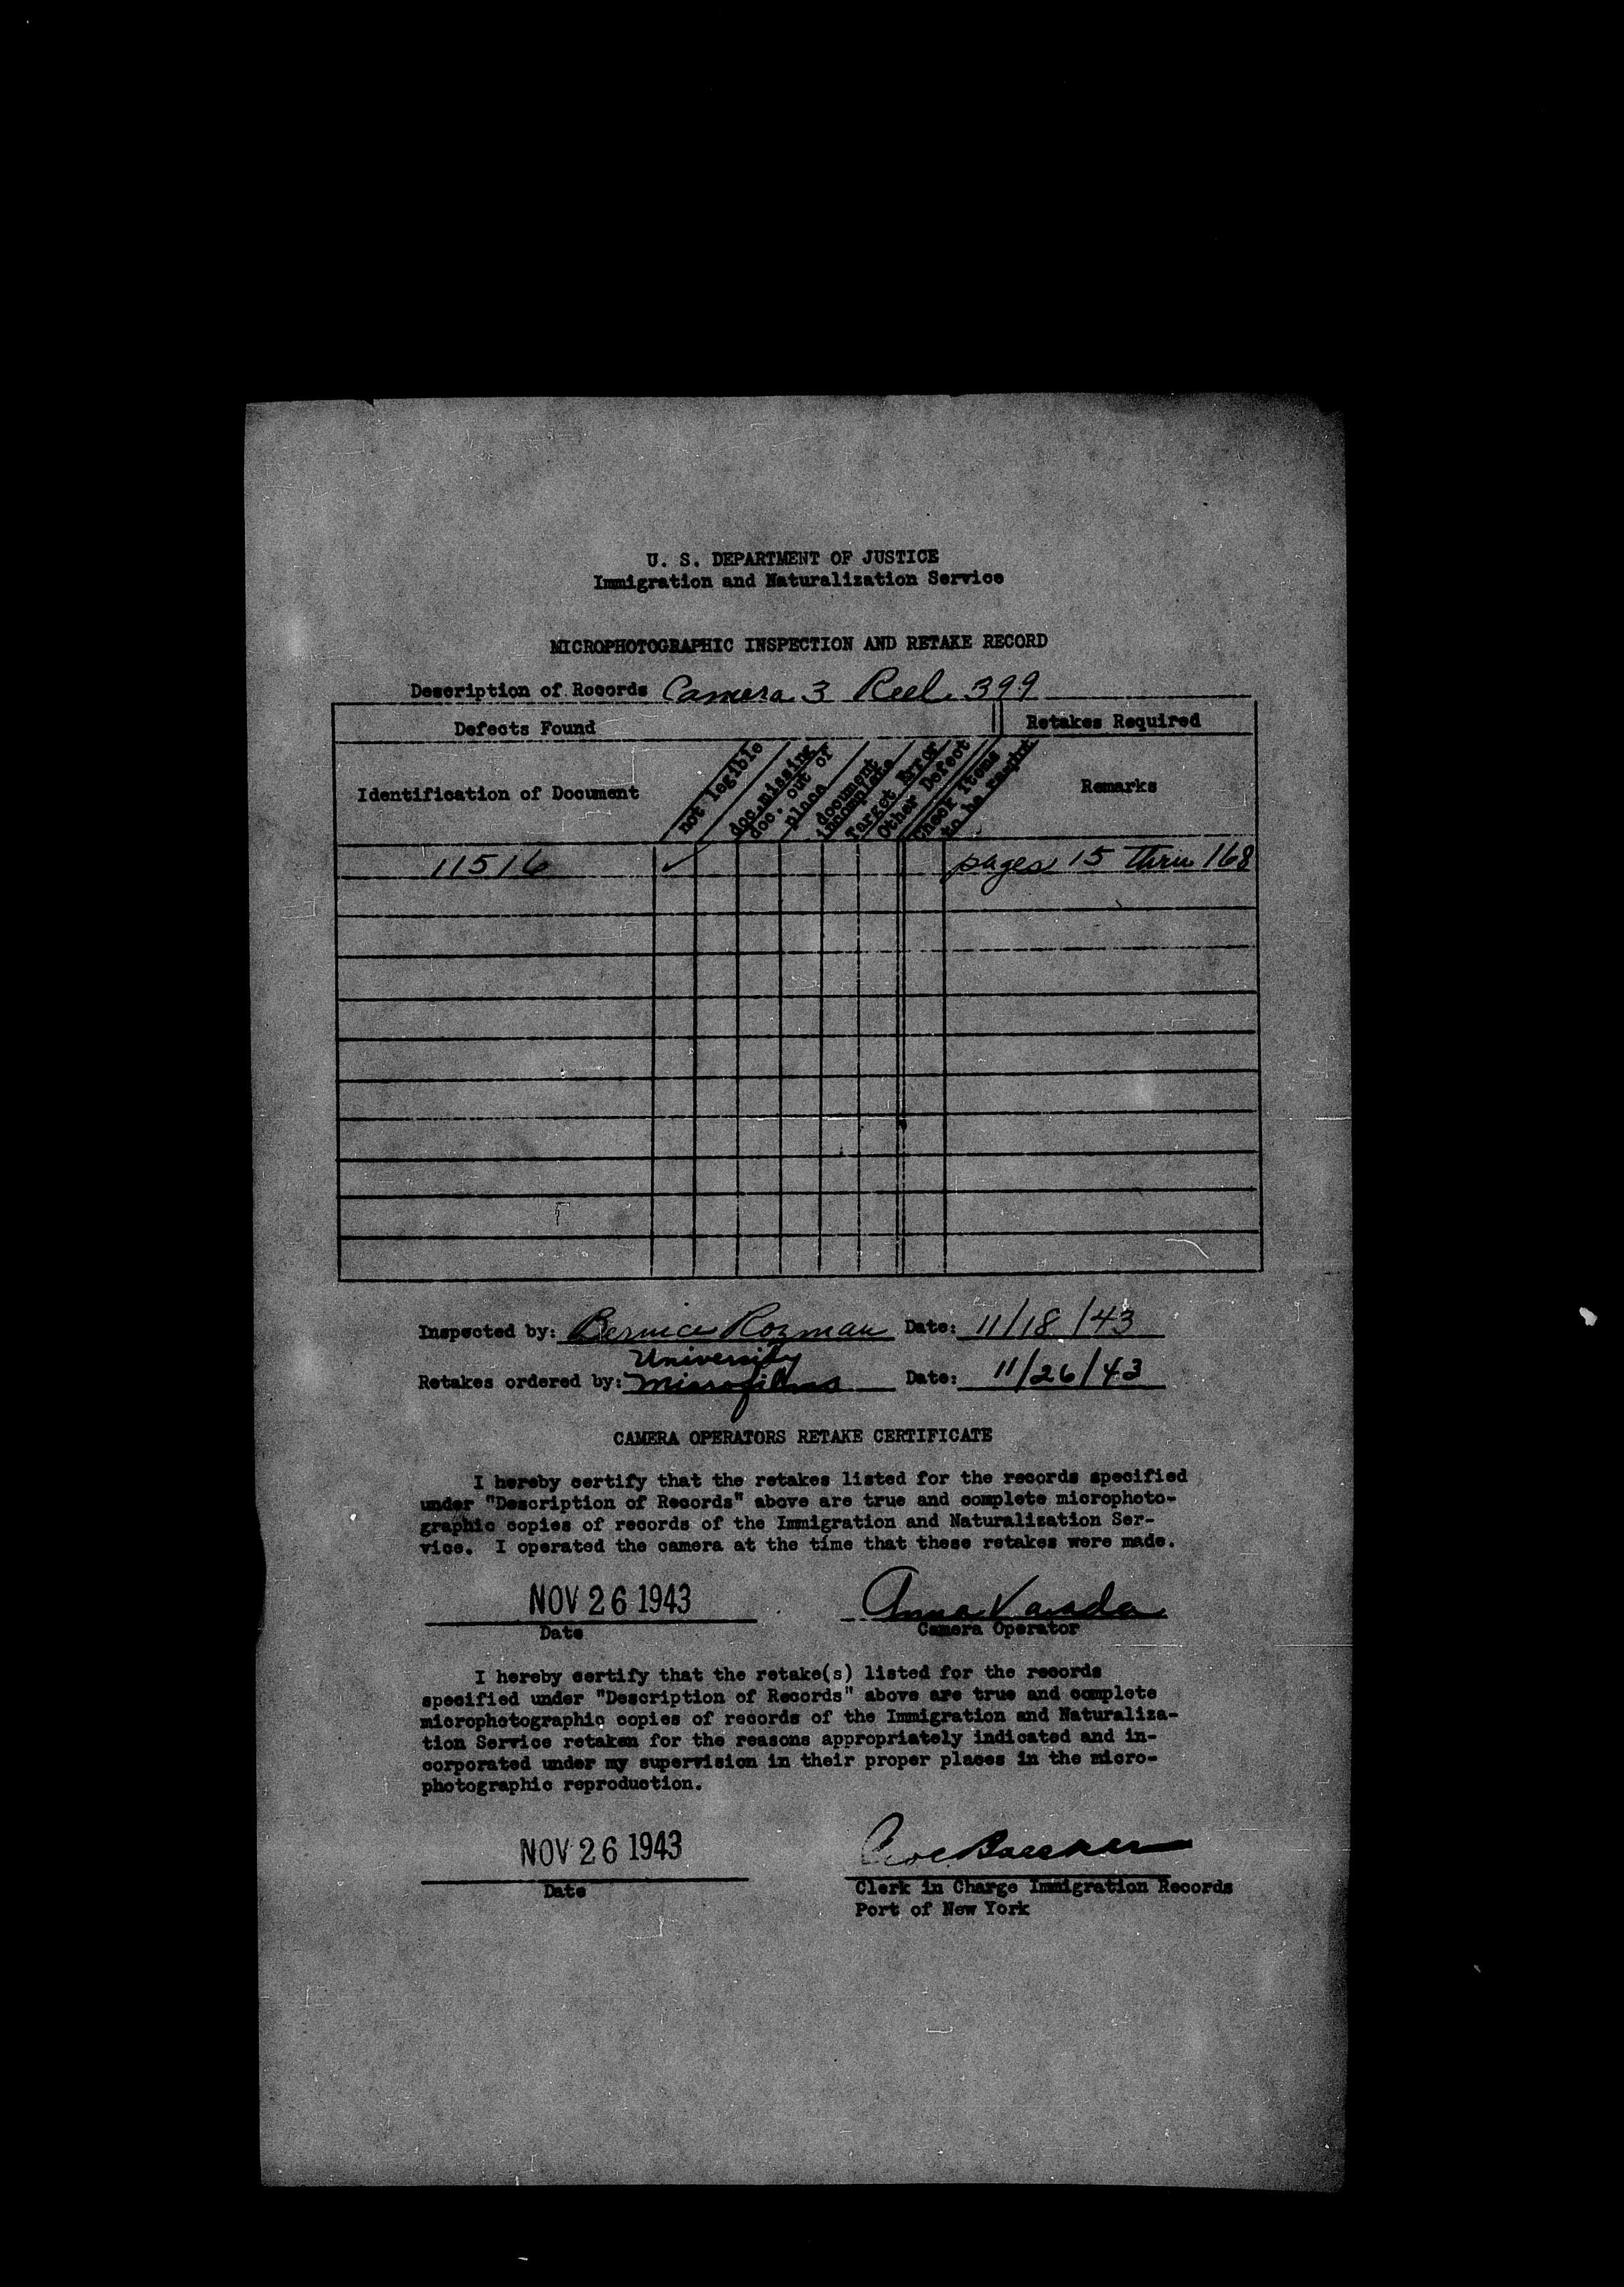 U. S. DEPARTMENT OF JUSTICE
Immigration and Naturalization Service
MICROPHOTOGRAPHIC INSPECTION AND RETAKE RECORD
Description of Records Camera 3 Reel 399
Defects Found
Retakes Required
Identification of Document
not legible
doc. missing
doc. out of
place
document
incomplete
Target Error
Other Defect
Check Items
to be
Remarks
11516 ✓ pages 15 thru 168
Inspected by: Bernice Rozman Date: 11/18/43
University
Retakes ordered by: Microfilms Date: 11/26/43
CAMERA OPERATORS RETAKE CERTIFICATE
I hereby certify that the retakes listed for the records specified
under "Description of Records" above are true and complete microphoto-
graphic copies of records of the Immigration and Naturalization Ser-
vice. I operated the camera at the time that these retakes were made.
NOV 26 1943 Anna
Date Camera Operator
I hereby certify that the retake(s) listed for the records
specified under "Description of Records" above are true and complete
microphotographic copies of records of the Immigration and Naturaliza-
tion Service retaken for the reasons appropriately indicated and in-
corporated under my supervision in their proper places in the micro-
photographic reproduction.
NOV 26 1943
Date
Clerk in Charge Immigration Records
Port of New York